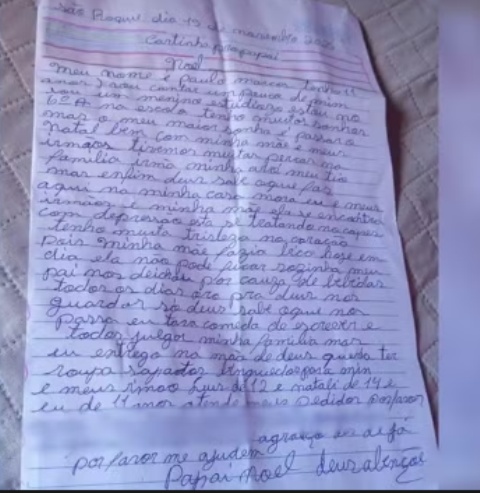 São Roque, dia 19 de novembro 202
Cartinha pra papai
Noel
Meu nome é paulo marcos tenho 11
anos vou contar um pouco de mim
sou um menino estudioso estou no
6º A na escola tenho muitos sonhos
mas o meu maior sonho é passar o
natal bem com minha mãe e meus
irmãos tivemos muitas percas na
familia irmã minha avó meu tio
mas enfim deus sabe oque faz
aqui na minha casa mora eu e meus
irmãos e minha mãe ela se encontra
com depressão esta se tratando no capes
tenho muita tristeza no coração
pois minha mãe fazia bico hoje em
dia ela não pode ficar sozinha meu
pai nos deichou por causa de bebidas
todos os dias oro pra deus nos
guardar só deus sabe oque nos
passa eu to com de escrever e
todos julgar minha familia mas
eu entrego na mão de deus queria ter
roupa sapatos brinquedos para mim
e meus irmão luis de 12 e natali de 14 e
eu de 11 anos atende meus pedidos por favor
agradeço desde já
por favor me ajudem
Papai noel deus abençoe